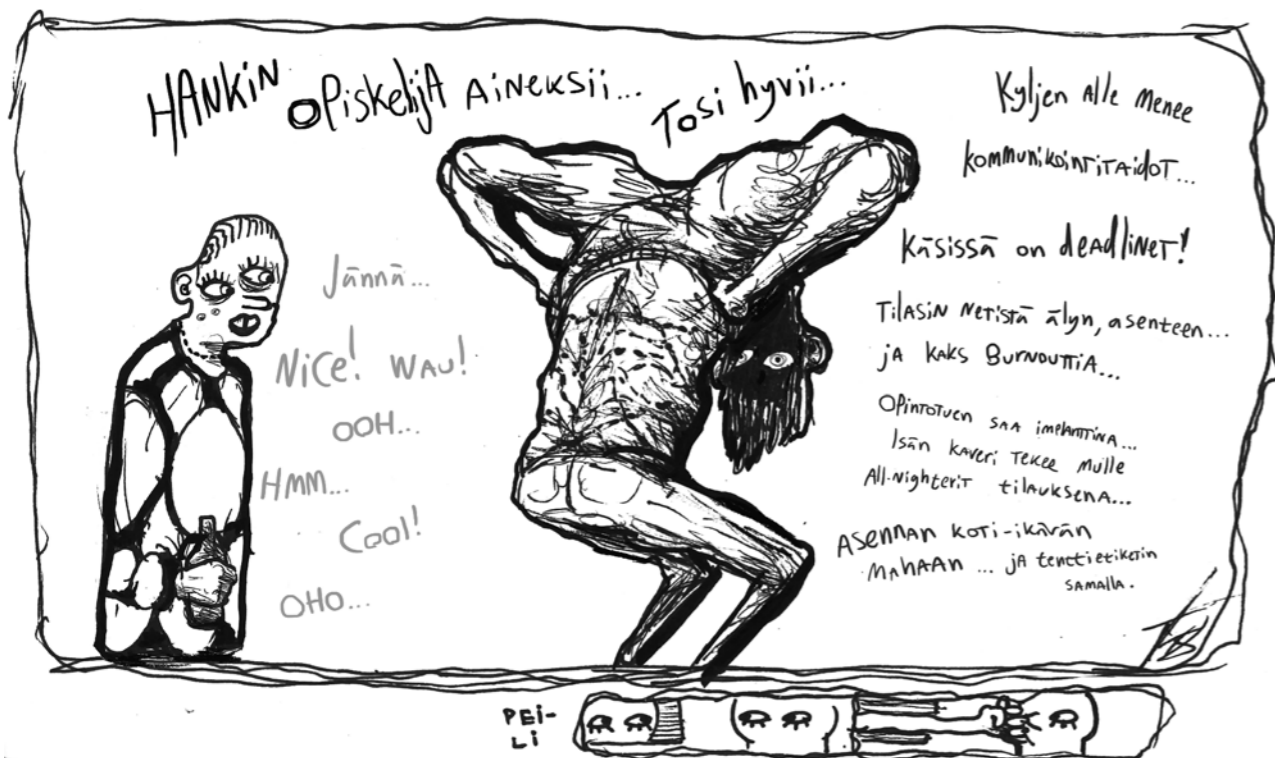 HANKIN OPISKELIJA AINEKSII... TOSI hyvii...
Jännä...
NICE! WAU!
OOH...
HMM...
Cool!
OHO...
Kyljen Alle Menee
KOMMUNIKOINTITAIDOT...
KÄSISSÄ ON deadliNeT!
TILASIN NETISTÄ älyn, asenteen...
JA KAKS BURNOUTTIA...
OPINTOTUEN SAA IMPLANTTINA...
Isän KAVERI TEKEE MULLE
All-NighteriT tilauksena...
ASENNAN KOTI-IKÄVÄN
MAHAAN ... JA tenttietiketin
SAMALLA.
PEI-
LI